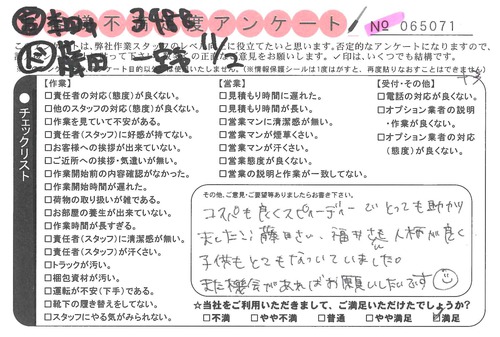 不 度アンケート
3988
№ 065071
11/2
藤田
アンケートは、弊社作業スタッフのレベル向上に役立てたいと思います。否定的なアンケートになりますので、
正直な意見をお願いします。✓印は、いくつでも結構です。
アンケート目的以外 使用いたしません。(※情報保護シールは1度はがすと、再度貼りなおすことはできません)
チェックリスト
【作業】
□責任者の対応(態度)が良くない。
□他のスタッフの対応(態度)が良くない。
□作業を見ていて不安がある。
□責任者(スタッフ)に好感が持てない。
□お客様への挨拶が出来ていない。
□ご近所への挨拶・気遣いが無い。
□作業開始前の内容確認がなかった。
□作業開始時間が遅れた。
□荷物の取り扱いが雑である。
□お部屋の養生が出来ていない。
□作業時間が長すぎる。
□責任者(スタッフ)に清潔感が無い。
□責任者(スタッフ)が汗臭い。
□トラックが汚い。
□梱包資材が汚い。
□運転が不安(下手)である。
□靴下の履き替えをしてない。
□スタッフにやる気がみられない。
【営業】
□見積もり時間に遅れた。
□見積もり時間が長い。
□営業マンに清潔感が無い。
□営業マンが煙草くさい。
□営業マンが汗くさい。
□営業態度が良くない。
□営業の説明と作業が一致してない。
【受付・その他】
□電話の対応が良くない。
□オプション業者の説明
・作業が良くない。
□オプション業者の対応
(態度)が良くない。
その他、ご意見・ご要望等ありましたらお書き下さい。
コスパも良くスピーディーでとっても助かり
ました!! 藤田さん、福井さん人柄が良く
子供もとてもなついていました。
また機会があればお願いしたいです
☆当社をご利用いただきまして、ご満足いただけたでしょうか?
□不満 □やや不満 □普通 □やや満足 ☑満足